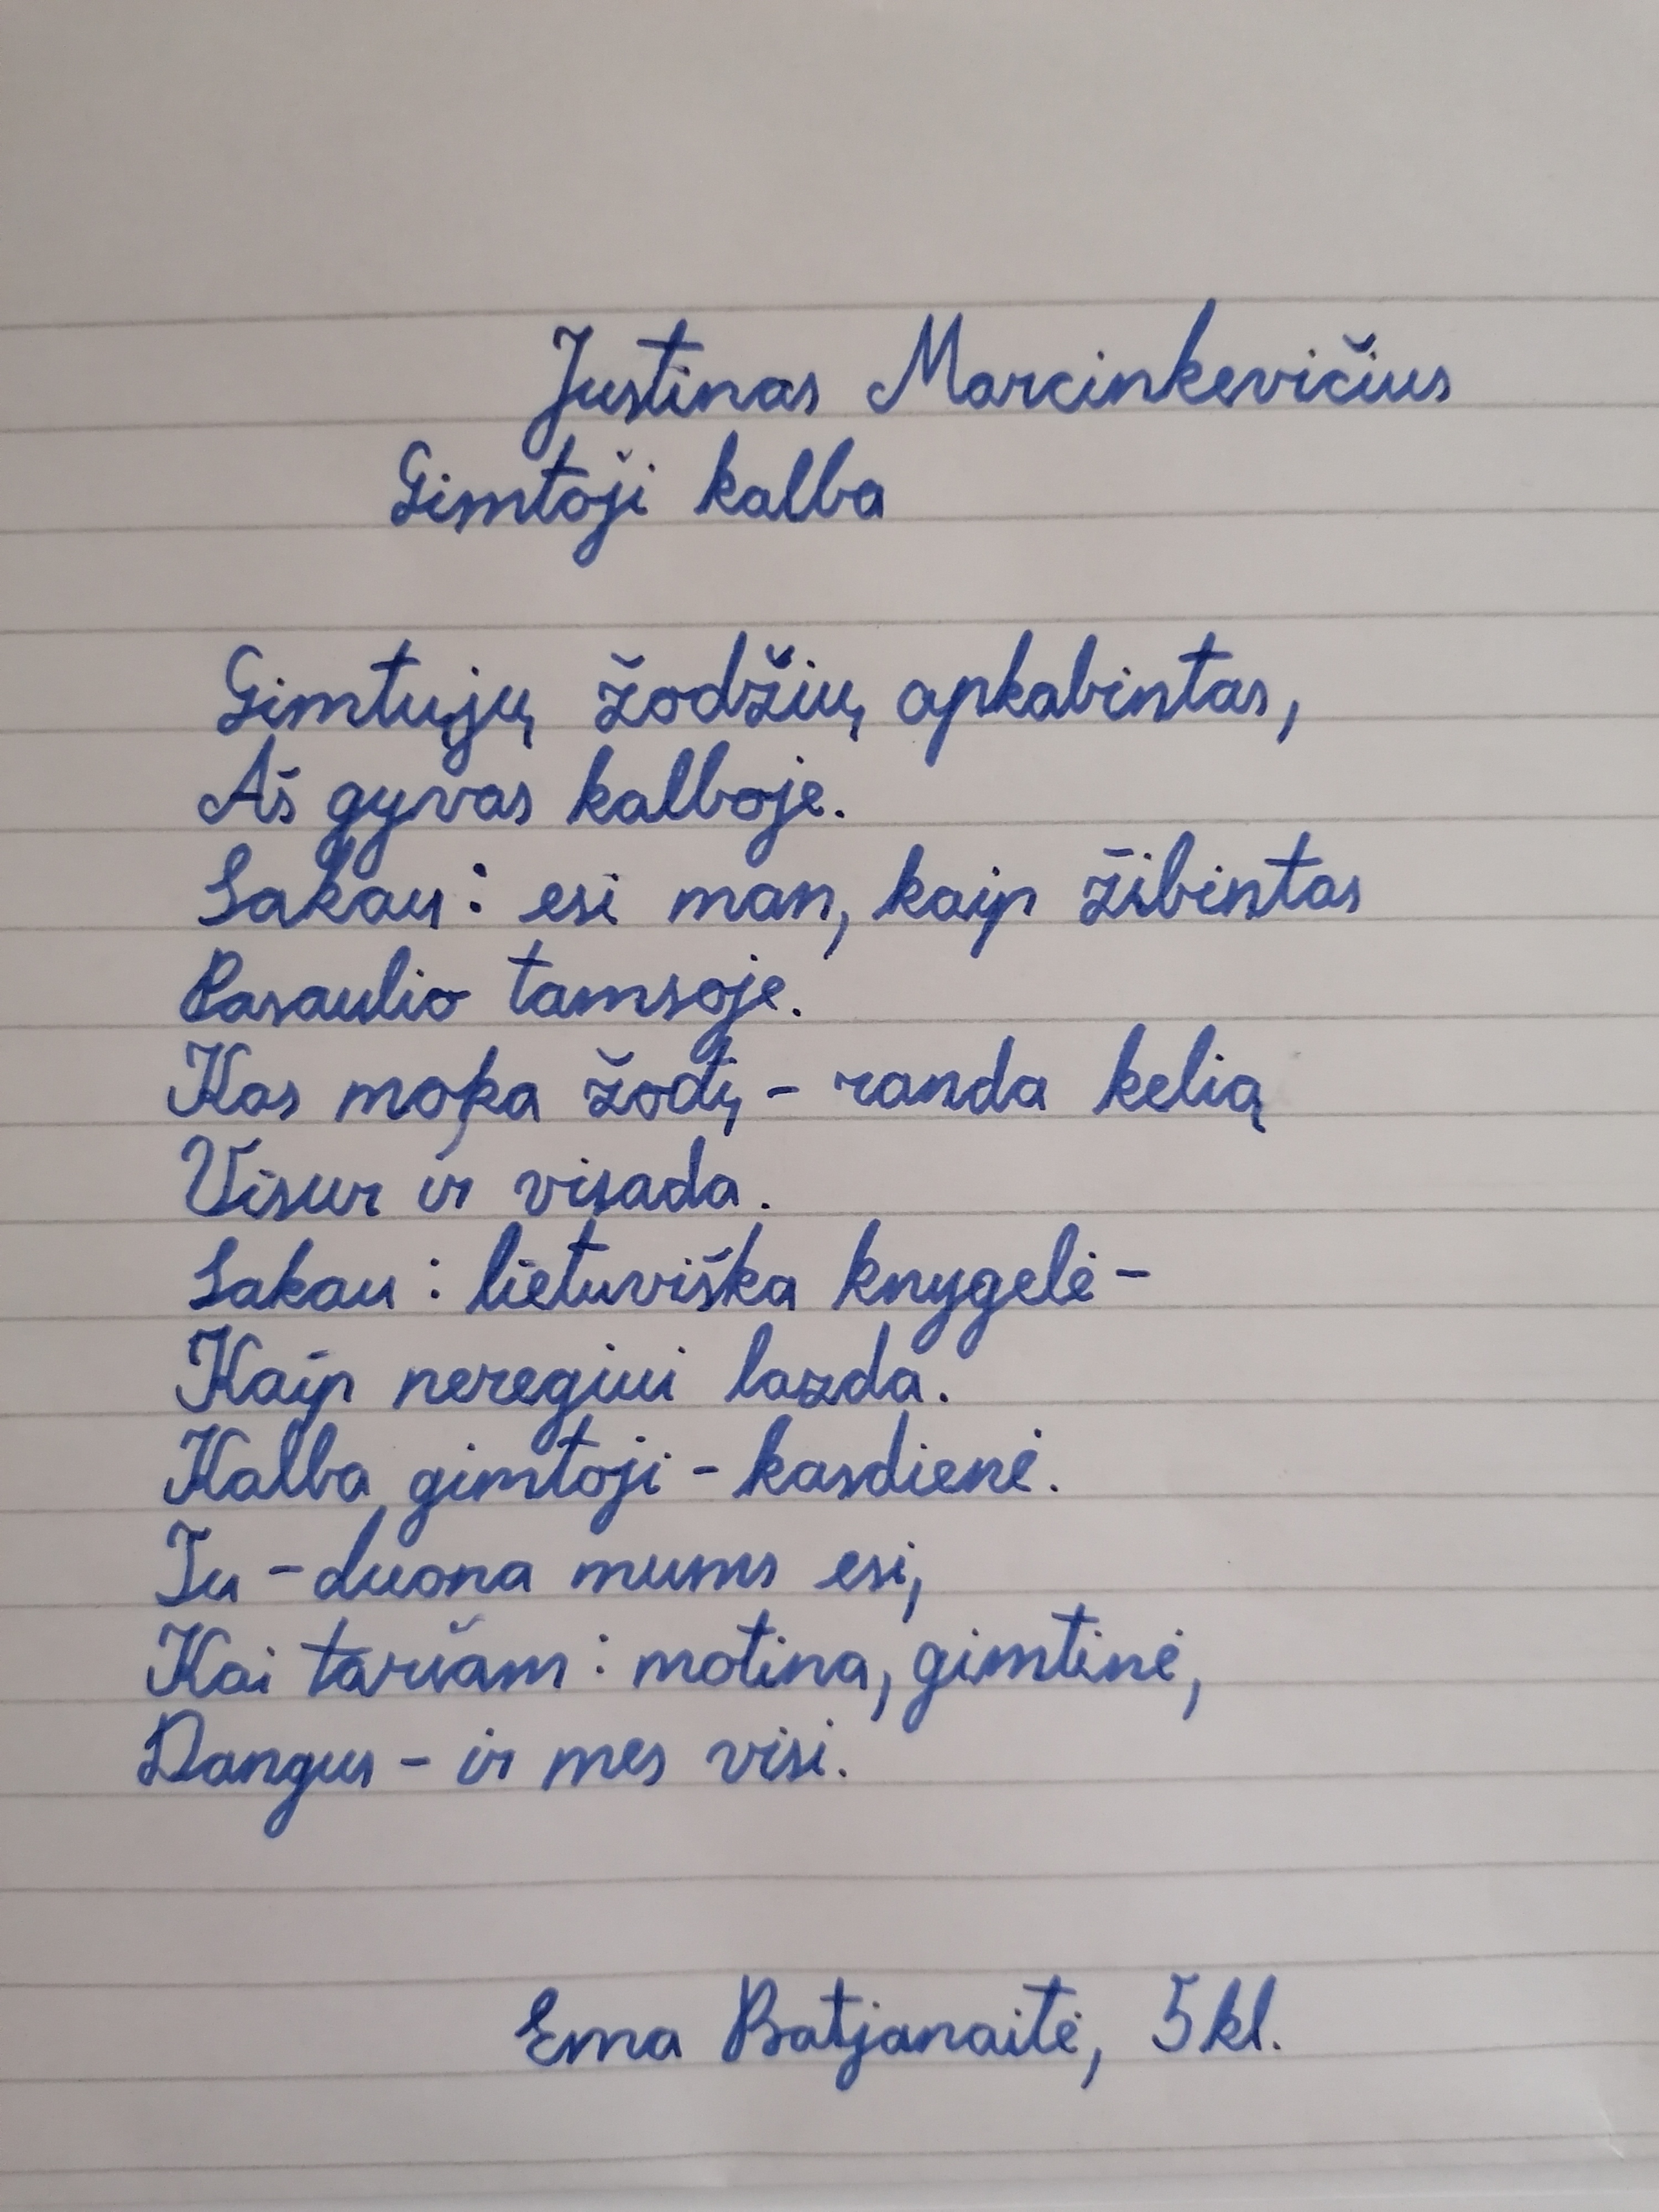 Justinas Marcinkevičius
Gimtoji kalba
Gimtųjų žodžių apkabintas,
Aš gyvas kalboje.
Sakau: esi man, kaip žibintas
Pasaulio tamsoje.
Kas moka žodį - randa kelią
Visur ir visada.
Sakau: lietuviška knygelė -
Kaip neregiui lazda.
Kalba gimtoji - kasdienė.
Tu - duona mums esi,
Kai tariam: motina, gimtinė,
Dangus - ir mes visi.
Ema Batjanaitė, 5kl.